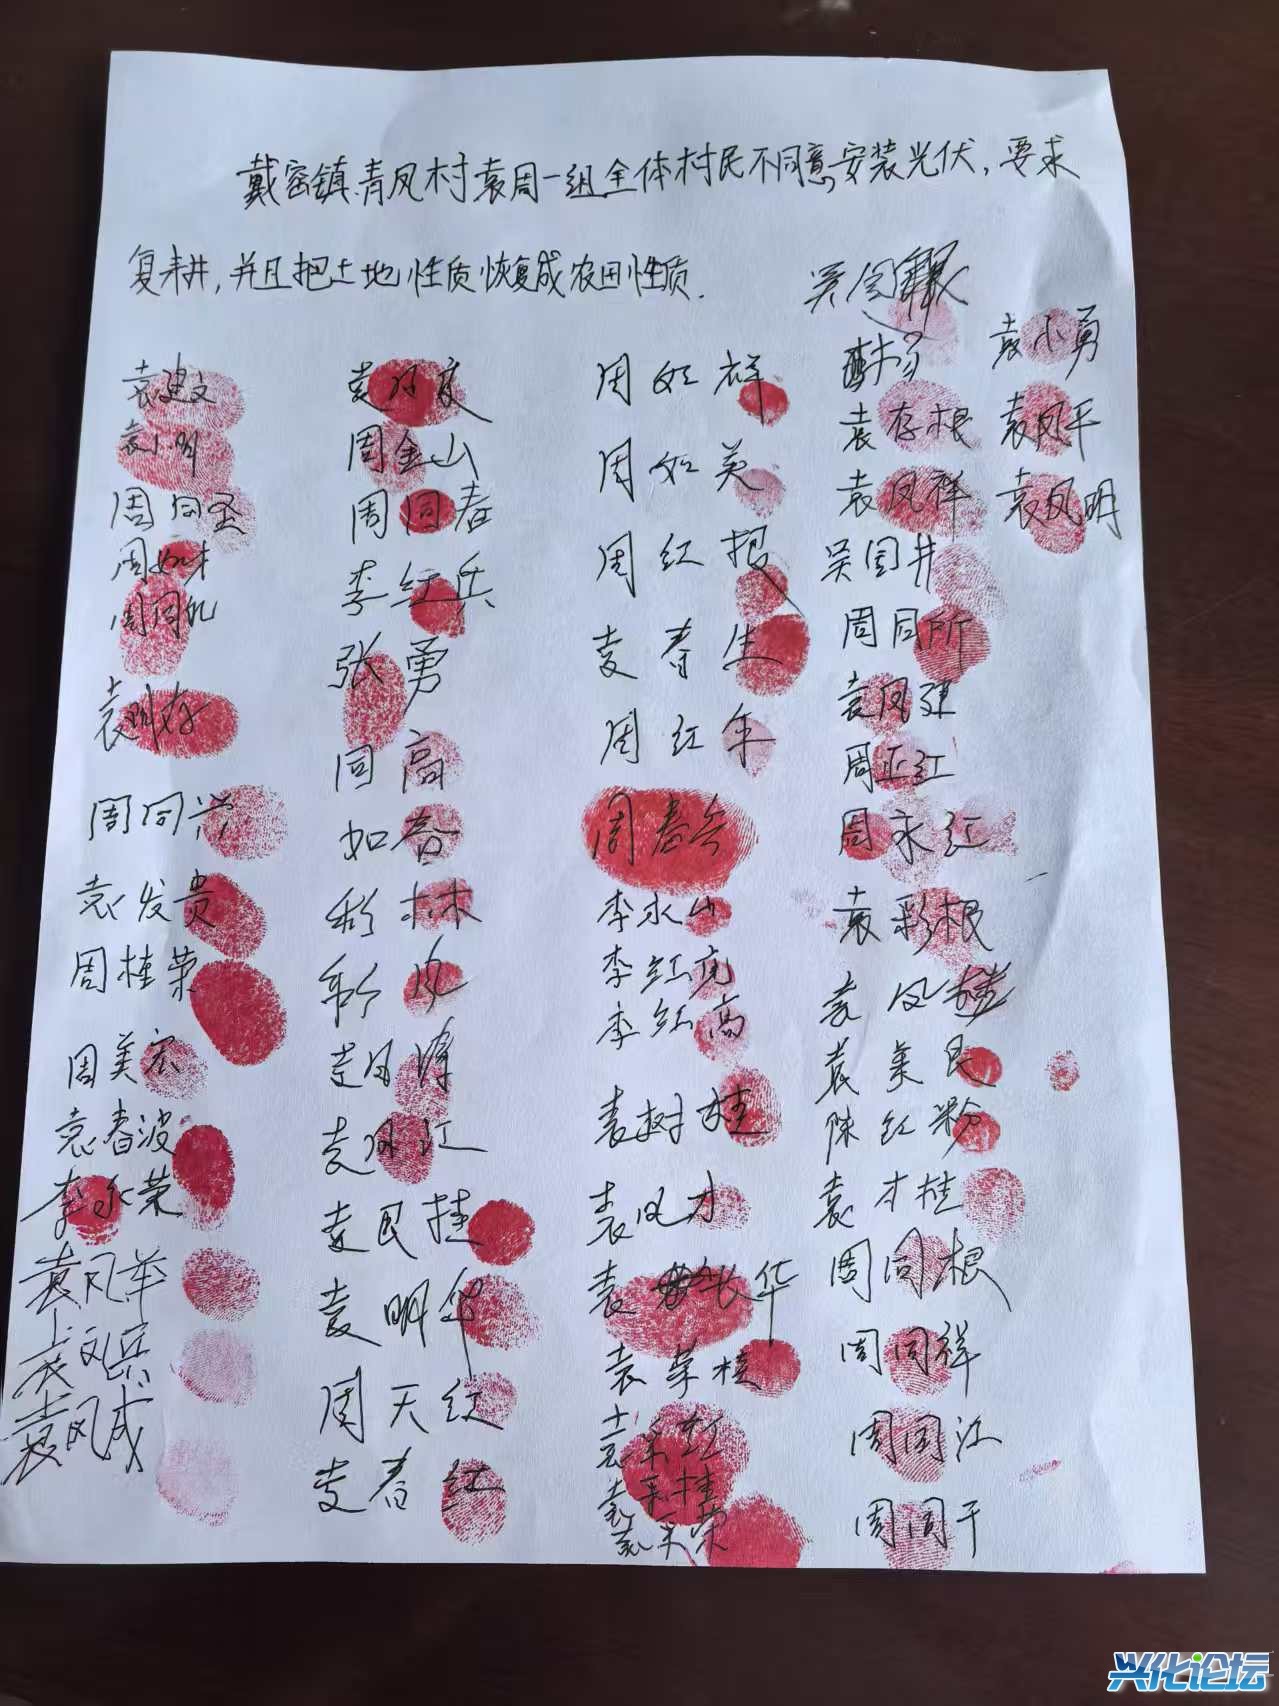 戴窑镇青凤村袁周一组全体村民不同意安装光伏，要求
复耕，并且把土地性质恢复成农田性质．
袁建文
袁小明
周同圣
周如才
周同兄
周同兴
袁发贵
周桂荣
周美宏
袁春波
李永荣
袁凤举
袁文兵
袁凤成
周金山
周同春
李红兵
张勇
同高
如春
彩林
袁月江
袁民桂
袁明华
周天红
袁春红
周如祥
周如英
周红根
袁春生
周红年
周春兵
李永山
李红亮
李红高
袁树桂
袁凤才
袁长华
袁荣桂
袁采红
袁采桂
袁采荣
袁存根
袁凤祥
吴国井
周同所
袁凤建
周正红
周永红
袁彩根
袁美良
陈红粉
袁才桂
周同根
周同祥
周国江
周同干
袁小勇
袁凤平
袁凤明
兴化论坛